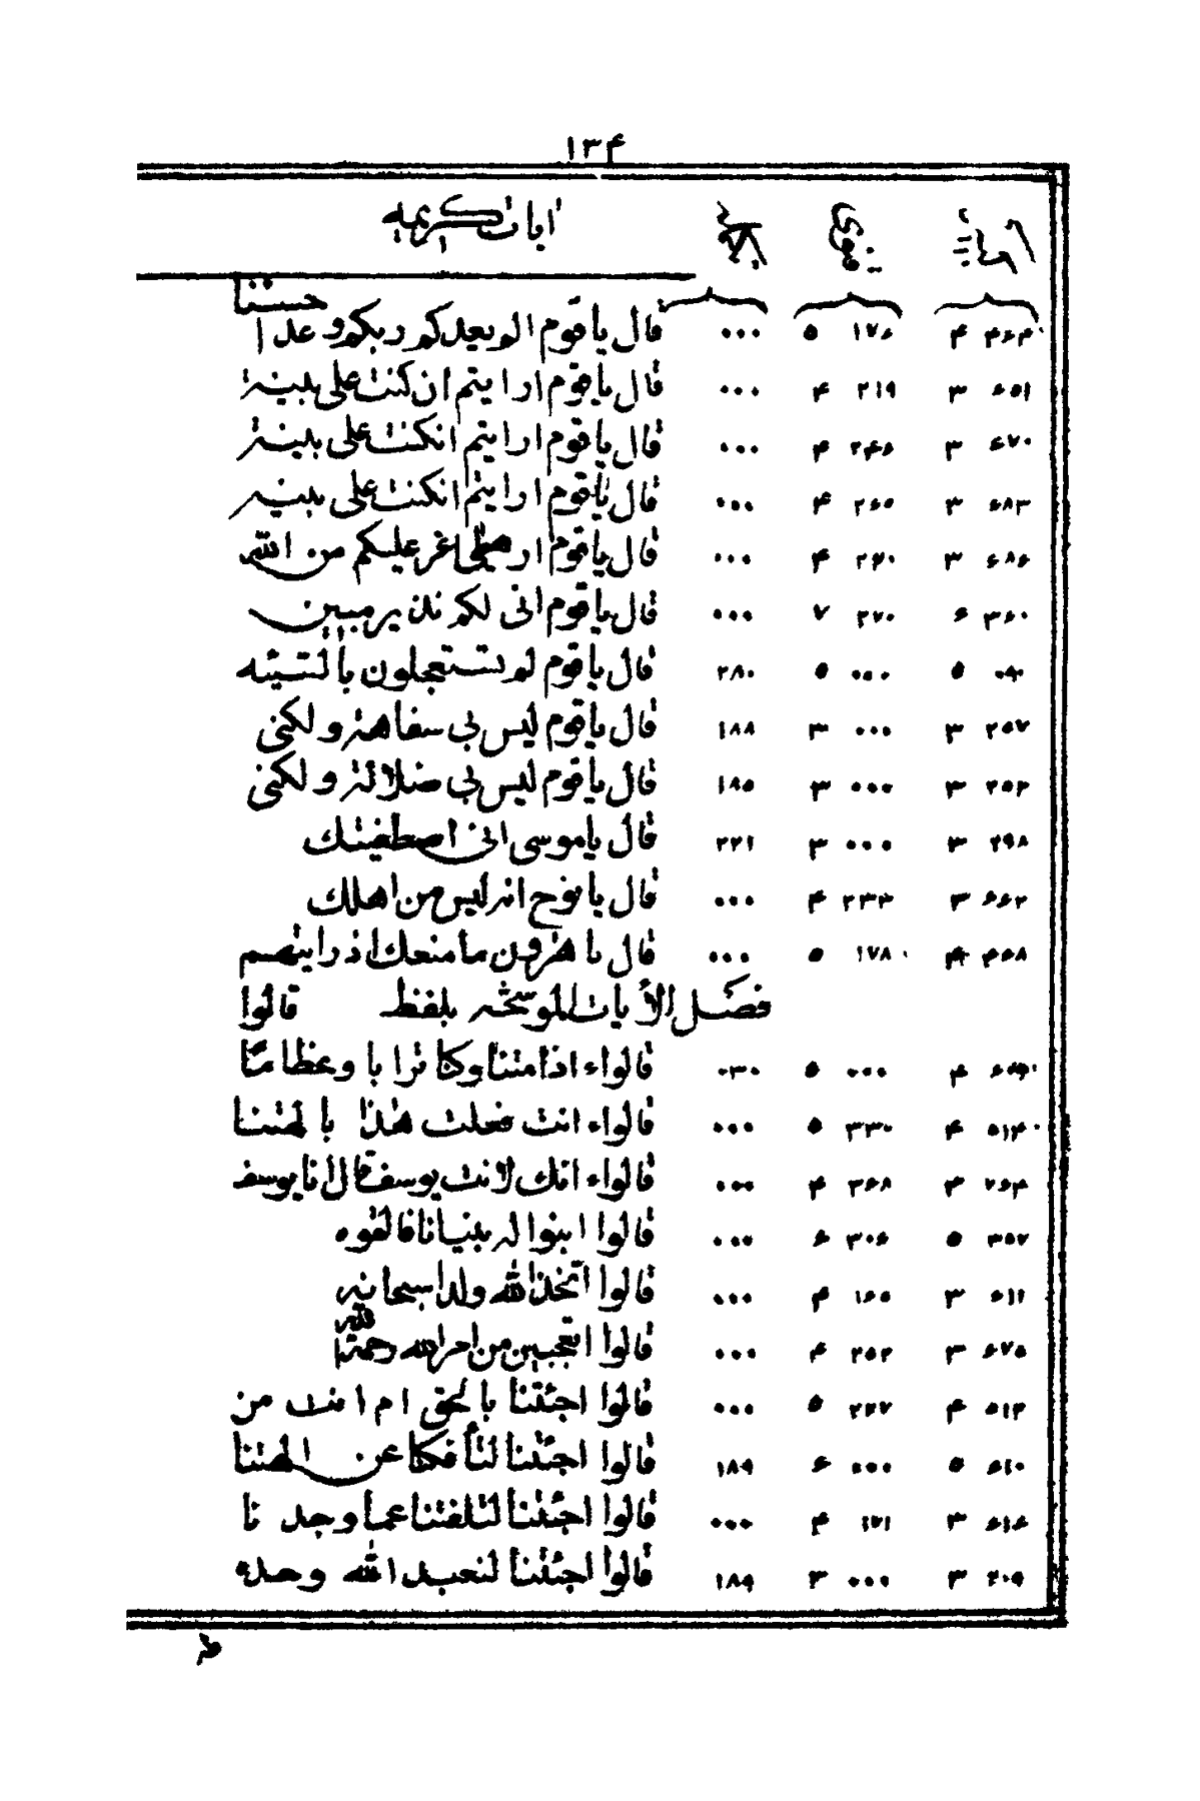 ١٣۴
ايات كريمه
۴۶۴ ۴ ١٧۶ ۵ ٠٠٠ قال ياقوم الم يعدكم ربكم وعدا حسنا
۶۵١ ٣ ٢١٩ ۴ ٠٠٠ قال ياقوم ارايتم ان كنت على بينة
۶٧٠ ٣ ٢۴۶ ۴ ٠٠٠ قال ياقوم ارايتم انكنت على بينة
۶٨٣ ٣ ٢۶۵ ۴ ٠٠٠ قال ياقوم ارايتم انكنت على بينه
۶٨۶ ٣ ٢٧٠ ۴ ٠٠٠ قال ياقوم ارهطى اعز عليكم من الله
٣۶٠ ۶ ٢٧٠ ٧ ٠٠٠ قال ياقوم انى لكم نذير مبين
٠٩٠ ۵ ٠٠٠ ۵ ٢٨٠ قال ياقوم لم تستعجلون بالسيئه
٢۵٧ ٣ ٠٠٠ ٣ ١٨٨ قال ياقوم ليس بى سفاهة ولكنى
٢۵٢ ٣ ٠٠٠ ٣ ١٨۵ قال ياقوم ليس بى ضلالة ولكنى
٢٩٨ ٣ ٠٠٠ ٣ ٢٢١ قال ياموسى انى اصطفيتك
۶۶٢ ٣ ٢٣٣ ۴ ٠٠٠ قال يا نوح انه ليس من اهلك
۴۶٨ ۴ ١٧٨ ۵ ٠٠٠ قال يا هرون ما منعك اذ رايتهم
فصل الايات الموشحه بلفظ قالوا
۴ ٠٠٠ ۵ ٠٣٠ قالواء اذا متنا وكنا ترابا وعظاما
۵١۴ ۴ ٣٣٠ ۵ ٠٠٠ قالواء انت فعلت هذا بالهتنا
٧۶۴ ٣ ٣۶٨ ۴ ٠٠٠ قالواء انك لانت يوسف قال انا يوسف
٣۵٧ ۵ ٣٠۶ ۶ ٠٠٠ قالوا ابنوا له بنيانا فالقوه
۶١١ ٣ ١۶۵ ۴ ٠٠٠ قالوا اتخذ الله ولدا سبحانه
۶٧۵ ٣ ٢۵٢ ۴ ٠٠٠ قالوا اتعجبين من امر الله رحمة الله
۵١٢ ۴ ٢٢٧ ۵ ٠٠٠ قالوا اجئتنا بالحق ام انت من
۶١٠ ۵ ٠٠٠ ۶ ١٨٩ قالوا اجئتنا لتأفكنا عن الهتنا
۶١۶ ٣ ١٧١ ۴ ٠٠٠ قالوا اجئتنا لتلفتنا عما وجدنا
٢٠٩ ٣ ٠٠٠ ٣ ١٨٩ قالوا اجئتنا لنعبد الله وحده